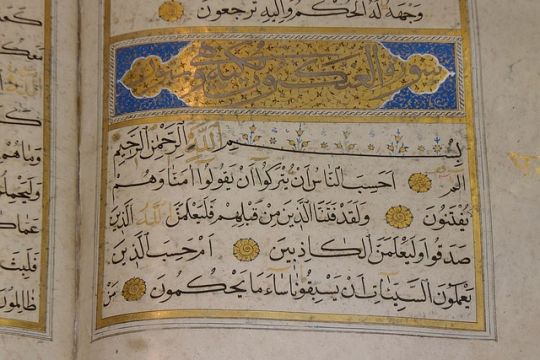 وجهه له الحكم واليه ترجعون
سورة العنكبوت
بسم الله الرحمن الرحيم
الم احسب الناس ان يتركوا ان يقولوا امنا وهم
يفتنون ولقد فتنا الذين من قبلهم فليعلمن الله الذين
صدقوا وليعلمن الكاذبين ام حسب الذين
يعملون السيئات ان يسبقونا ساء ما يحكمون من
ظالمون